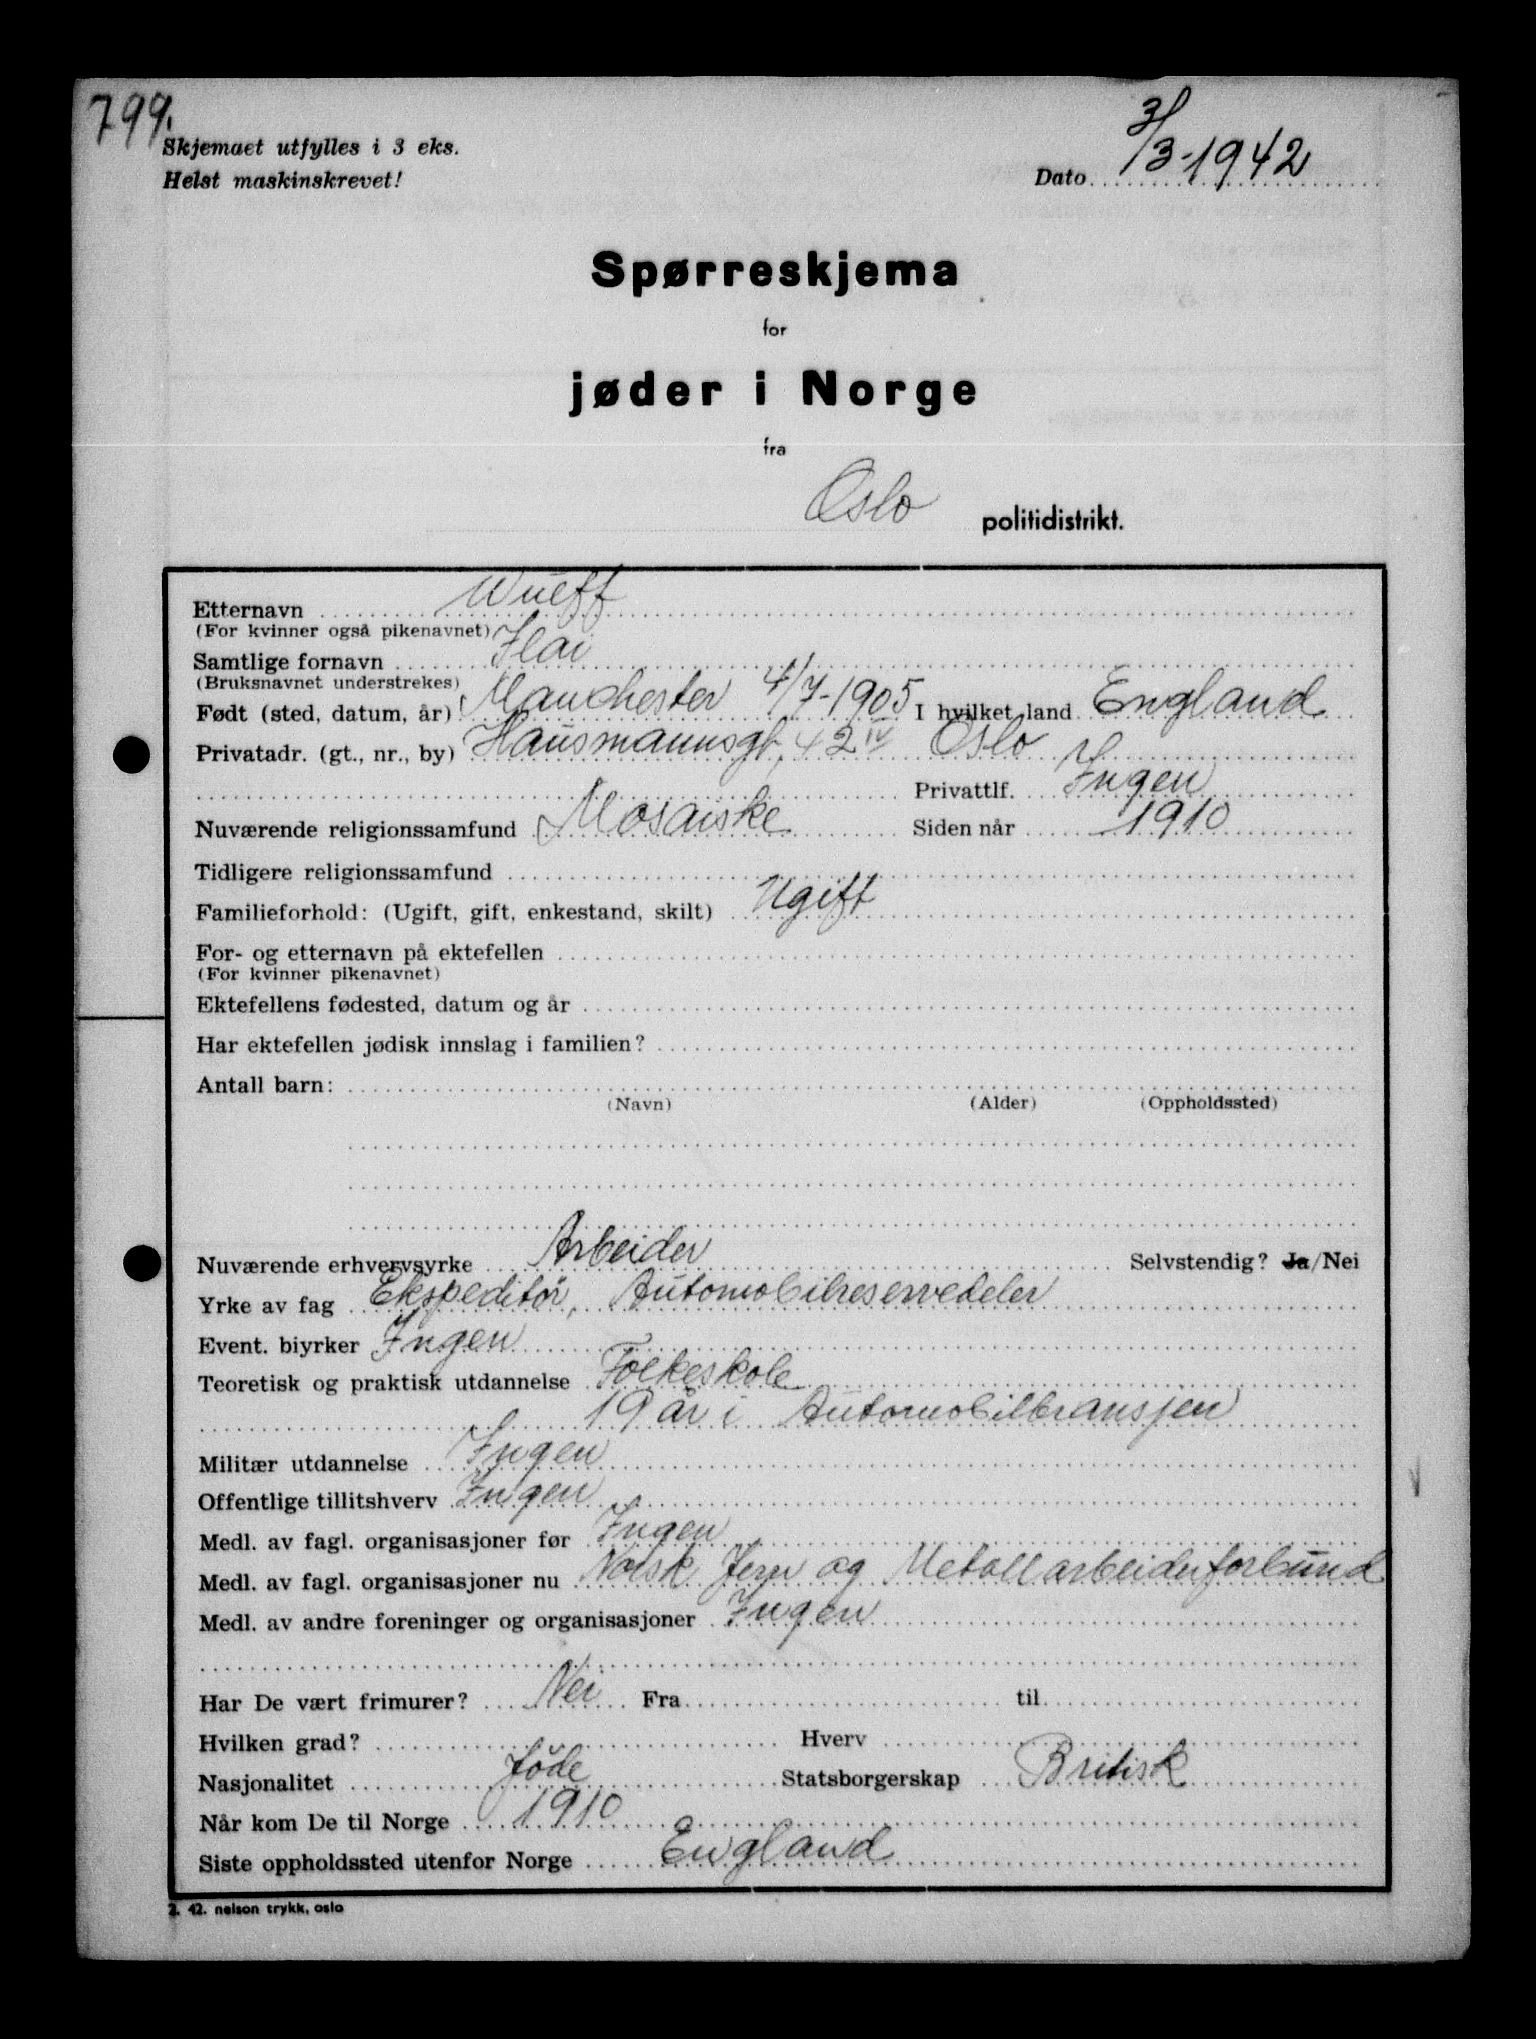 799.
Skjemaet utfylles i 3 eks.
Helst maskinskrevet!
Dato 3/3-1942
Spørreskjema
for
jøder i Norge
fra
Oslo politidistrikt.
Etternavn Wulff
(For kvinner også pikenavnet)
Samtlige fornavn
(Bruksnavnet understrekes)
Født (sted, datum, år) Manchester 4/7-1905 I hvilket land England
Privatadr. (gt., nr., by) Hausmannsgt. 42 IV Oslo
Privattlf. Ingen
Nuværende religionssamfund Mosaiske Siden når 1910
Tidligere religionssamfund
Familieforhold: (Ugift, gift, enkestand, skilt) Ugift
For- og etternavn på ektefellen
(For kvinner pikenavnet)
Ektefellens fødested, datum og år
Har ektefellen jødisk innslag i familien?
Antall barn:
(Navn) (Alder) (Oppholdssted)
Nuværende erhvervsyrke Arbeider Selvstendig? Ja/Nei
Yrke av fag Ekspeditør, Automobilreservedeler
Event. biyrker Ingen
Teoretisk og praktisk utdannelse Folkeskole
19 år i Automobilbransjen
Militær utdannelse Ingen
Offentlige tillitshverv Ingen
Medl. av fagl. organisasjoner før Ingen
Medl. av fagl. organisasjoner nu Norsk Jern og Metallarbeiderforbund
Medl. av andre foreninger og organisasjoner Ingen
Har De vært frimurer? Nei Fra til
Hvilken grad? Hverv
Nasjonalitet Jøde Statsborgerskap Britisk
Når kom De til Norge 1910
Siste oppholdssted utenfor Norge England
2. 42. nelson trykk, oslo